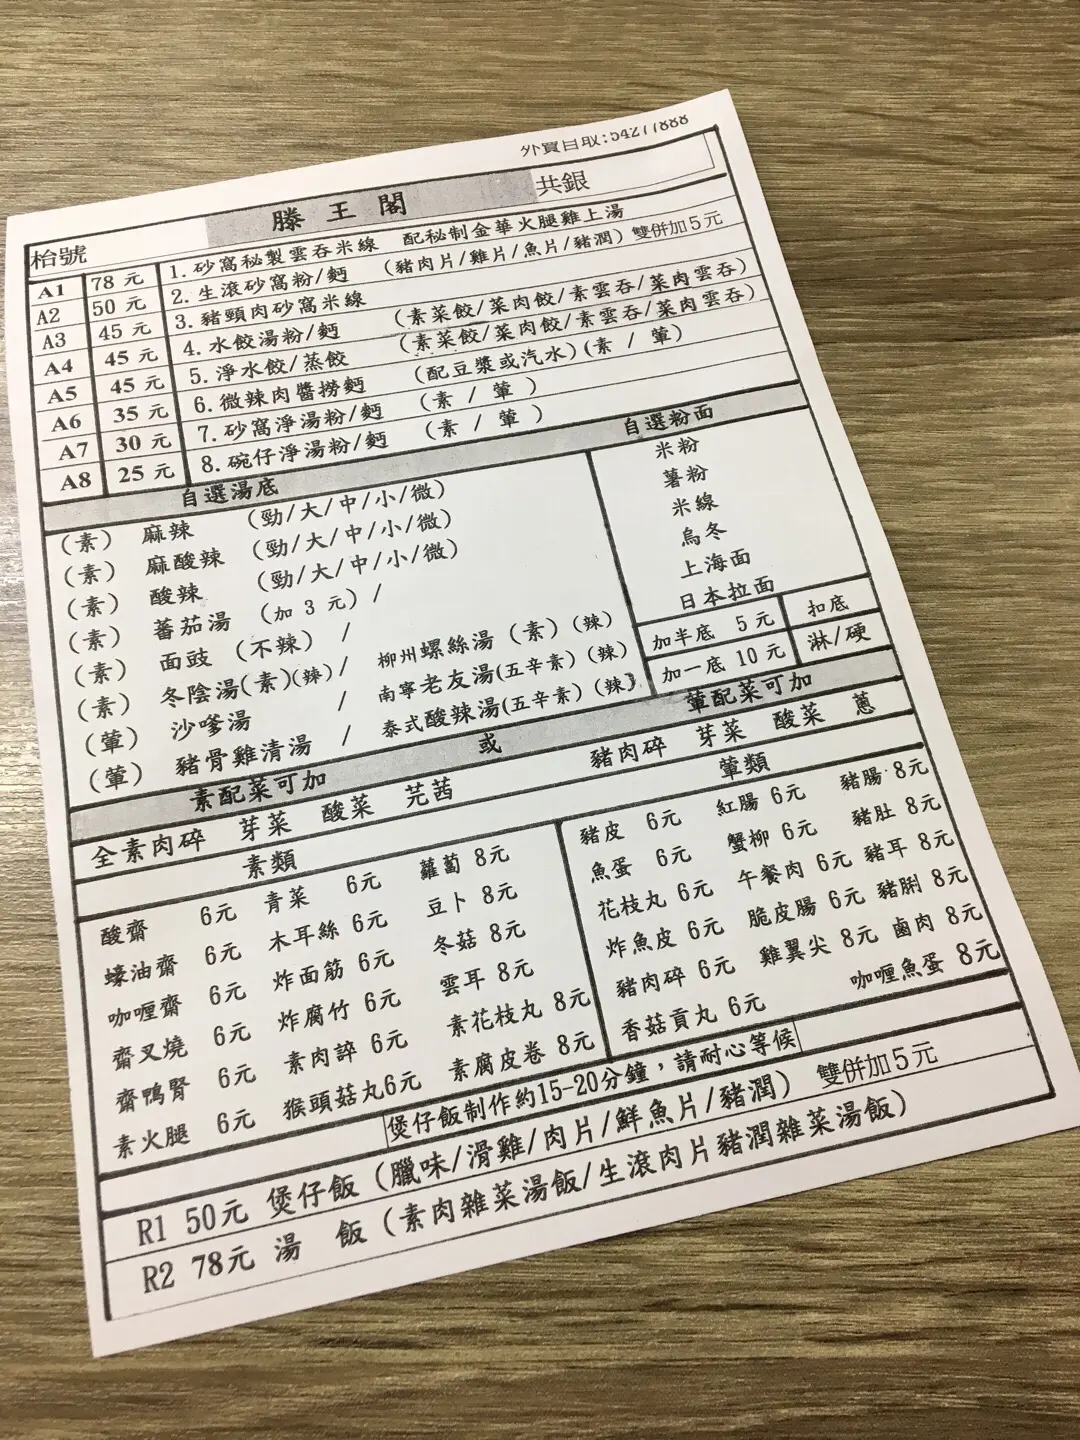 外賣自取:54277888
滕王閣 共銀
枱號
A1 78元 1.砂窩秘製雲吞米線 配秘制金華火腿雞上湯
A2 50元 2.生滾砂窩粉/麪 (豬肉片/雞片/魚片/豬潤) 雙併加5元
A3 45元 3.豬頸肉砂窩米線
A4 45元 4.水餃湯粉/麪 (素菜餃/菜肉餃/素雲吞/菜肉雲吞)
A5 45元 5.淨水餃/蒸餃 (素菜餃/菜肉餃/素雲吞/菜肉雲吞)
A6 35元 6.微辣肉醬撈麪 (配豆漿或汽水)(素 / 葷)
A7 30元 7.砂窩淨湯粉/麪 (素 / 葷)
A8 25元 8.碗仔淨湯粉/麪 (素 / 葷)
自選湯底 自選粉面
(素) 麻辣 (勁/大/中/小/微) 米粉
(素) 麻酸辣 (勁/大/中/小/微) 薯粉
(素) 酸辣 (勁/大/中/小/微) 米線
(素) 蕃茄湯 (加 3 元) / 烏冬
(素) 面豉 (不辣) / 柳州螺絲湯 (素) (辣) 上海面
(素) 冬陰湯(素)(辣)/ 南寧老友湯(五辛素) (辣) 日本拉面
(葷) 沙嗲湯 / 泰式酸辣湯(五辛素) (辣)
(葷) 豬骨雞清湯 /
加半底 5元 扣底
加一底 10元 淋/硬
素配菜可加 或 葷配菜可加
全素肉碎 芽菜 酸菜 芫茜 豬肉碎 芽菜 酸菜 蔥
素類 葷類
酸齋 6元 青菜 6元 蘿蔔 8元
蠔油齋 6元 木耳絲 6元 豆卜 8元
咖喱齋 6元 炸面筋 6元 冬菇 8元
齋叉燒 6元 炸腐竹 6元 雲耳 8元
齋鴨腎 6元 素肉誶 6元 素花枝丸 8元
素火腿 6元 猴頭菇丸6元 素腐皮卷 8元
豬皮 6元 紅腸 6元 豬腸 8元
魚蛋 6元 蟹柳 6元 豬肚 8元
花枝丸 6元 午餐肉 6元 豬耳 8元
炸魚皮 6元 脆皮腸 6元 豬脷 8元
豬肉碎 6元 雞翼尖 8元 鹵肉 8元
香菇貢丸 6元 咖喱魚蛋 8元
煲仔飯制作約15-20分鐘，請耐心等候
R1 50元 煲仔飯 (臘味/滑雞/肉片/鮮魚片/豬潤) 雙併加5元
R2 78元 湯 飯 (素肉雜菜湯飯/生滾肉片豬潤雜菜湯飯)